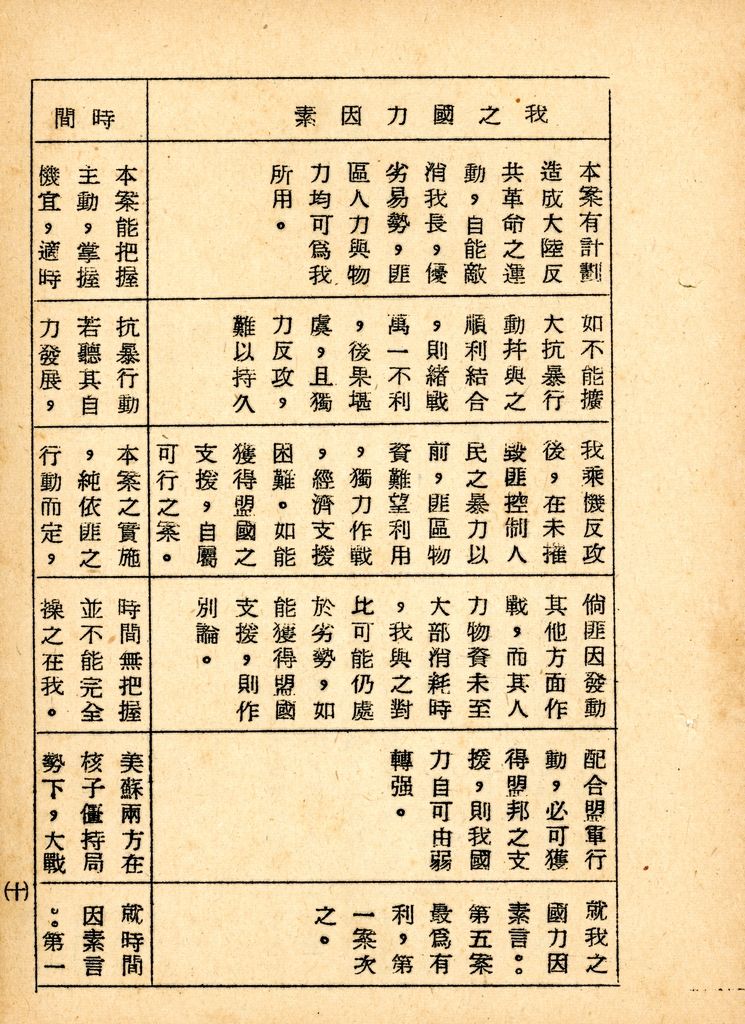 我之國力因素
本案有計劃
造成大陸反
共革命之運
動，自能敵
消我長，優
劣易勢，匪
區人力與物
力均可爲我
所用。
如不能擴
大抗暴行
動幷與之
順利結合
，則緒戰
萬一不利
，後果堪
虞，且獨
力反攻，
難以持久
我乘機反攻
後，在未摧
毀匪控制人
民之暴力以
前，匪區物
資難望利用
，獨力作戰
，經濟支援
困難。如能
獲得盟國之
支援，自屬
可行之案。
倘匪因發動
其他方面作
戰，而其人
力物資未至
大部消耗時
，我與之對
比可能仍處
於劣勢，如
能獲得盟國
支援，則作
別論。
配合盟軍行
動，必可獲
得盟邦之支
援，則我國
力自可由弱
轉强。
就我之
國力因
素言。。
第五案
最爲有
利，第
一案次
之。
時間
本案能把握
主動，掌握
機宜，適時
抗暴行動
若聽其自
力發展，
本案之實施
，純依匪之
行動而定，
時間無把握
並不能完全
操之在我。
美蘇兩方在
核子僵持局
勢下，大戰
就時間
因素言
。。第一
(十)